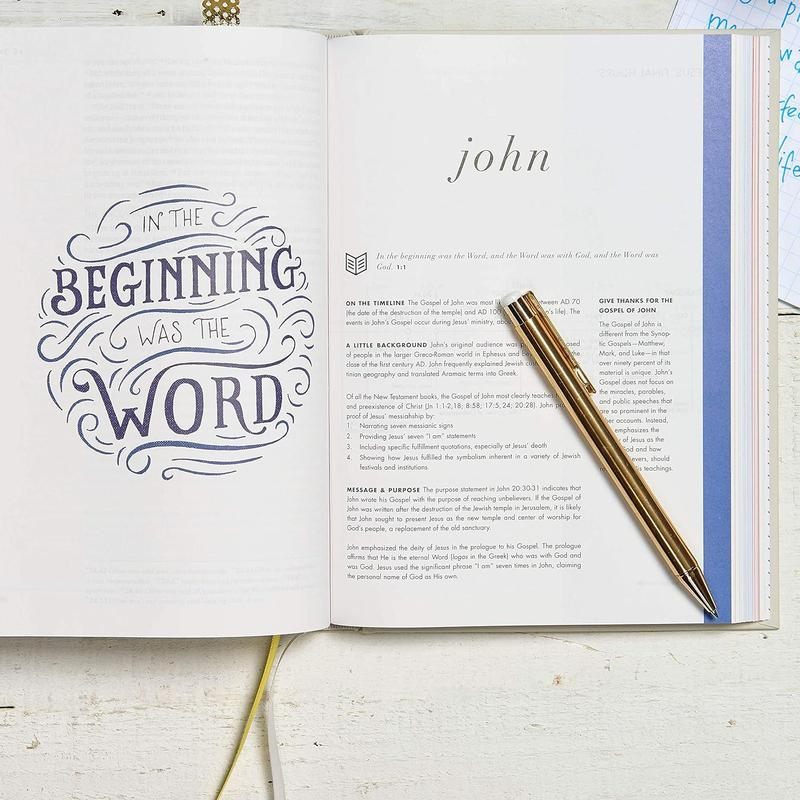 IN THE
BEGINNING
WAS THE
WORD
john
In the beginning was the Word, and the Word was with God, and the Word was
God. 1:1
ON THE TIMELINE The Gospel of John was most between AD 70
(the date of the destruction of the temple) and AD 100 John's life). The
events in John's Gospel occur during Jesus' ministry,
A LITTLE BACKGROUND John's original audience was
of people in the larger Greco-Roman world in Ephesus and
close of the first century AD. John frequently explained Jewish
tinian geography and translated Aramaic terms into Greek.
Of all the New Testament books, the Gospel of John most clearly teaches
and preexistence of Christ (Jn 1:1-2,18; 8:58; 17:5, 24; 20:28). John
proof of Jesus' messiahship by:
1. Narrating seven messianic signs
2. Providing Jesus' seven "I am" statements
3. Including specific fulfillment quotations, especially at Jesus' death
4. Showing how Jesus fulfilled the symbolism inherent in a variety of Jewish
festivals and institutions.
MESSAGE & PURPOSE The purpose statement in John 20:30-31 indicates that
John wrote his Gospel with the purpose of reaching unbelievers. If the Gospel of
John was written after the destruction of the Jewish temple in Jerusalem, it is likely
that John sought to present Jesus as the new temple and center of worship for
God's people, a replacement of the old sanctuary.
John emphasized the deity of Jesus in the prologue to his Gospel. The prologue
affirms that He is the eternal Word (logos in the Greek) who was with God and
was God. Jesus used the significant phrase "I am" seven times in John, claiming
the personal name of God as His own.
GIVE THANKS FOR THE
GOSPEL OF JOHN
The Gospel of John is
different from the Synop-
tic Gospels—Matthew,
Mark, and Luke—in that
over ninety percent of its
material is unique. John's
Gospel does not focus on
the miracles, parables,
and public speeches that
are so prominent in the
other accounts. Instead,
emphasizes the
of Jesus as the
God and how
should
his teachings.